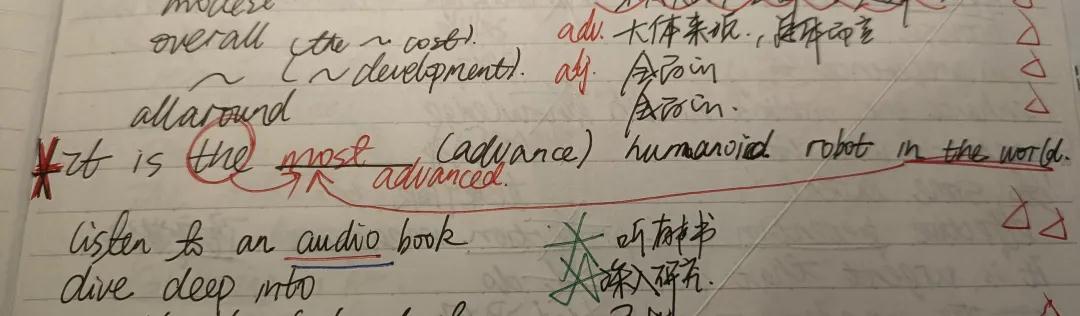 modest
overall (the ~ cost). adv. 大体来说., 总体而言
~ (~ development). adj. 全面的
all around 全面的.
*It is the most (advance) humanoid robot in the world.
advanced.
listen to an audio book 听有声书
dive deep into 深入研究.